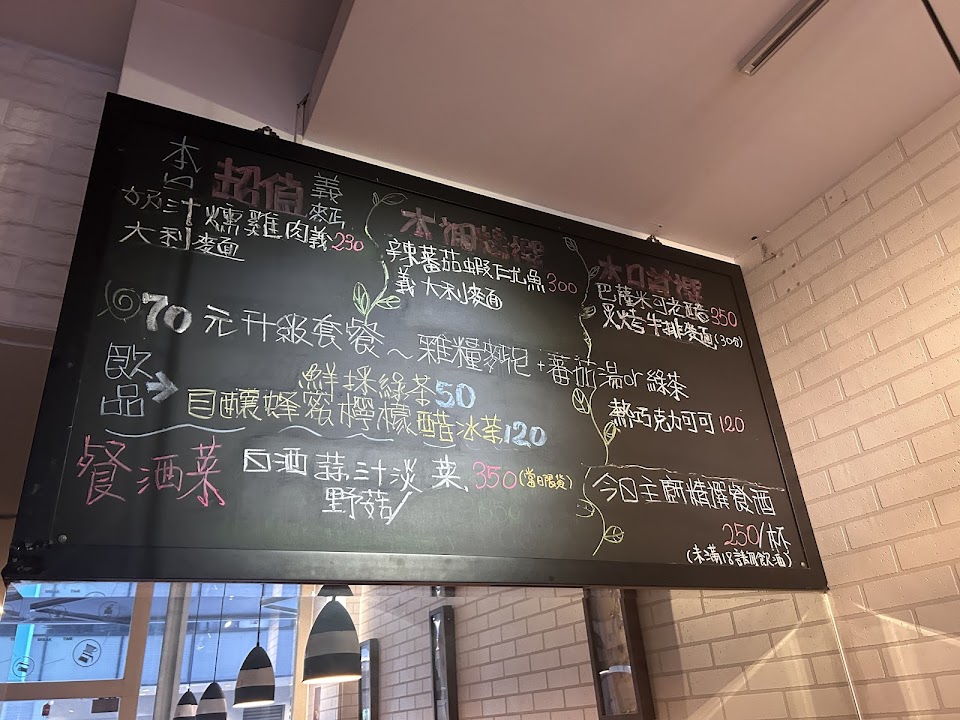 本日 超值 義麵
奶汁燻雞肉義 230
大利麵
本週精選
辣蕃茄蝦仁北魚 300
義大利麵
本日首選
巴薩米可老醋 350
炙烤牛排麥面(30分)
70元升級套餐~雜糧麵包+蕃茄湯or綠茶
飲品→ 鮮採綠茶50
自釀蜂蜜檸檬醋冰茶120
熱巧克力可可 120
餐酒菜 白酒蒜汁淡菜 350(當日限量)
野菇
今日主廚精撰餐酒
250/杯
(未滿18請勿飲酒)